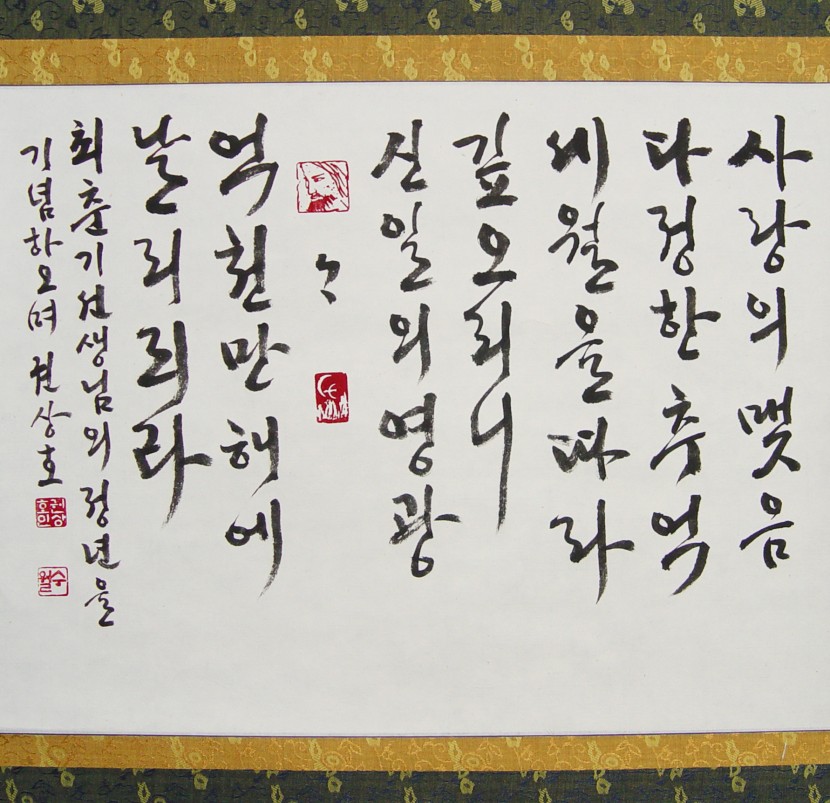 사랑의 맺음
다정한 추억
세월을 따라
깊오리니
신일의 영광
〻
억천만 해에
날리리라
최춘기 선생님의 정년을
기념하오며 권상호
권상호인
수월